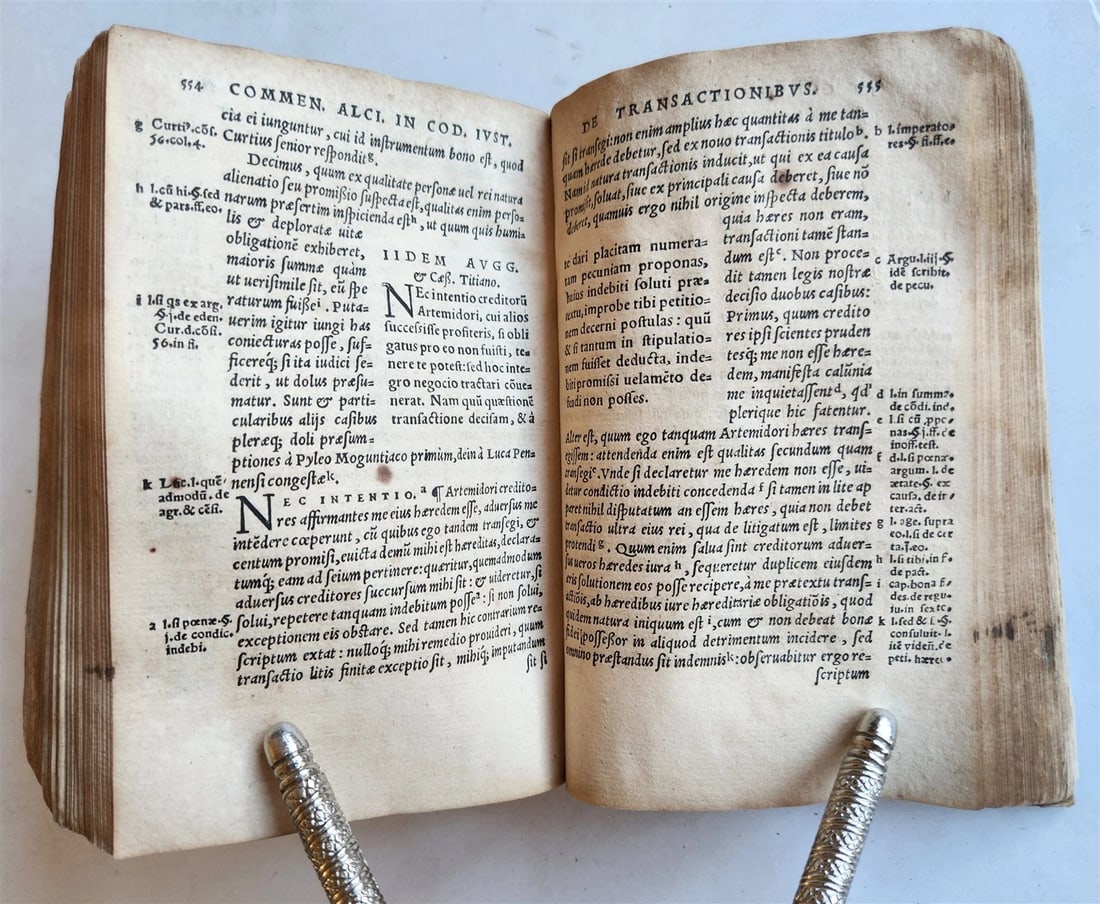 554 COMMEN. ALCI. IN COD. IVST.
cia ei iunguntur, cui id instrumentum bono est, quod
Curtius senior respondit g.
g Curtiꝰ. cōs.
56. col. 4.
Decimus, quum ex qualitate personæ uel rei natura
alienatio seu promißio suspecta est, qualitas enim perso=
narum præsertim inspicienda est h, ut quum quis humi=
h l. cū hi. §. sed
& pars. ff. eo.
lis & deploratæ uitæ
obligationē exhiberet,
maioris summæ quàm
ut uerisimile sit, eū spe
raturum fuiße i. Puta=
uerim igitur iungi has
coniecturas posse, suf=
ficereq́; si ita iudici se=
derit, ut dolus præsu=
matur. Sunt & parti=
cularibus alijs casibus
pleræq; doli præsum=
ptiones à Pyleo Moguntiaco primùm, dein à Luca Pen=
nensi congestæ k.
i l. si qs ex arg.
§. j. de eden.
Cur. d. cōsi.
56. in fi.
k Luc. l. quē
admodū. de
agr. & cēsi.
IIDEM AVGG.
& Cæß. Titiano.
NEc intentio creditorū
Artemidori, cui alios
successisse profiteris, si obli
gatus pro eo non fuisti, te=
nere te potest: sed hoc inte=
gro negocio tractari cōue=
nerat. Nam quū quæstionē
transactione decisam, & à
NEC INTENTIO. a ¶ Artemidori credito=
res affirmantes me eius hæredem esse, aduersus me
intēdere cœperunt, cū quibus ego tandem transegi, &
centum promisi, euicta demū mihi est hæreditas, declara=
tumq́; eam ad seium pertinere: quæritur, quemadmodum
aduersus creditores succursum mihi sit: & uideretur, si
solui, repetere tanquam indebitum posse a: si non solui,
exceptionem eis obstare. Sed tamen hic contrarium re=
scriptum extat: nulloq́; mihi remedio prouideri, quum
transactio litis finitæ exceptio sit, mihiq́; imputandum
sit si
a l. si pœnæ. §.
j. de condic.
indebi.
DE TRANSACTIONIBVS. 555
sit si transegi: non enim amplius hæc quantitas à me tan=
quam hærede debetur, sed ex nouo transactionis titulo b.
Nam id natura transactionis inducit, ut qui ex ea causa
promisit, soluat, siue ex principali causa deberet, siue nō
deberet, quamuis ergo nihil origine inspecta deberem,
b l. imperato=
res. §. fi. ff. eo
quia hæres non eram,
transactioni tamē stan=
dum est c. Non proce=
dit tamen legis nostræ
decisio duobus casibus:
Primus, quum credito
res ipsi scientes pruden
tesq́; me non esse hære=
dem, manifesta calūnia
me inquietassent d, qd'
plerique hic fatentur.
c Argu. l. iij. §.
idē scribit.
de pecu.
te dari placitam numera=
tam pecuniam proponas,
huius indebiti soluti præ=
textu, improbe tibi petitio=
nem decerni postulas: quū
& si tantum in stipulatio=
nem fuisset deducta, inde=
biti promissi uelamēto de=
fendi non posses.
Alter est, quum ego tanquam Artemidori hæres trans=
egissem: attendenda enim est qualitas secundum quam
transegi e. Vnde si declaretur me hæredem non esse, ui=
detur condictio indebiti concedenda f si tamen in lite ap
paret nihil disputatum an essem hæres, quia non debet
transactio ultra eius rei, qua de litigatum est, limites
protendi g. Quum enim salua sint creditorum aduer=
sus ueros hæredes iura h, sequeretur duplicem eiusdem
æris solutionem eos posse recipere, à me prætextu trans=
actiōis, ab hæredibus iure hæreditariæ obligatiōis, quod
quidem natura iniquum est i, cum & non debeat bonæ
fidei possessor in aliquod detrimentum incidere, sed
omnino præstandus sit indemnis k: obseruabitur ergo re=
scriptum
d l. in summa.
de cōdi. ind.
e l. si cū ppe
nas. §. j. ff. de
inoff. test.
f d. l. si pœnæ
argum. l. de
ætate. §. ex
causa. de in
ter. act.
g l. age. supra
eo. l. si de cer
ta. j. eo.
h l. si tibi. in f.
de pact.
i cap. bona fi=
des. de regu.
iu. in sexto.
k l. sed & si. §.
consuluit. l.
itē videń. de
peti. hæred.